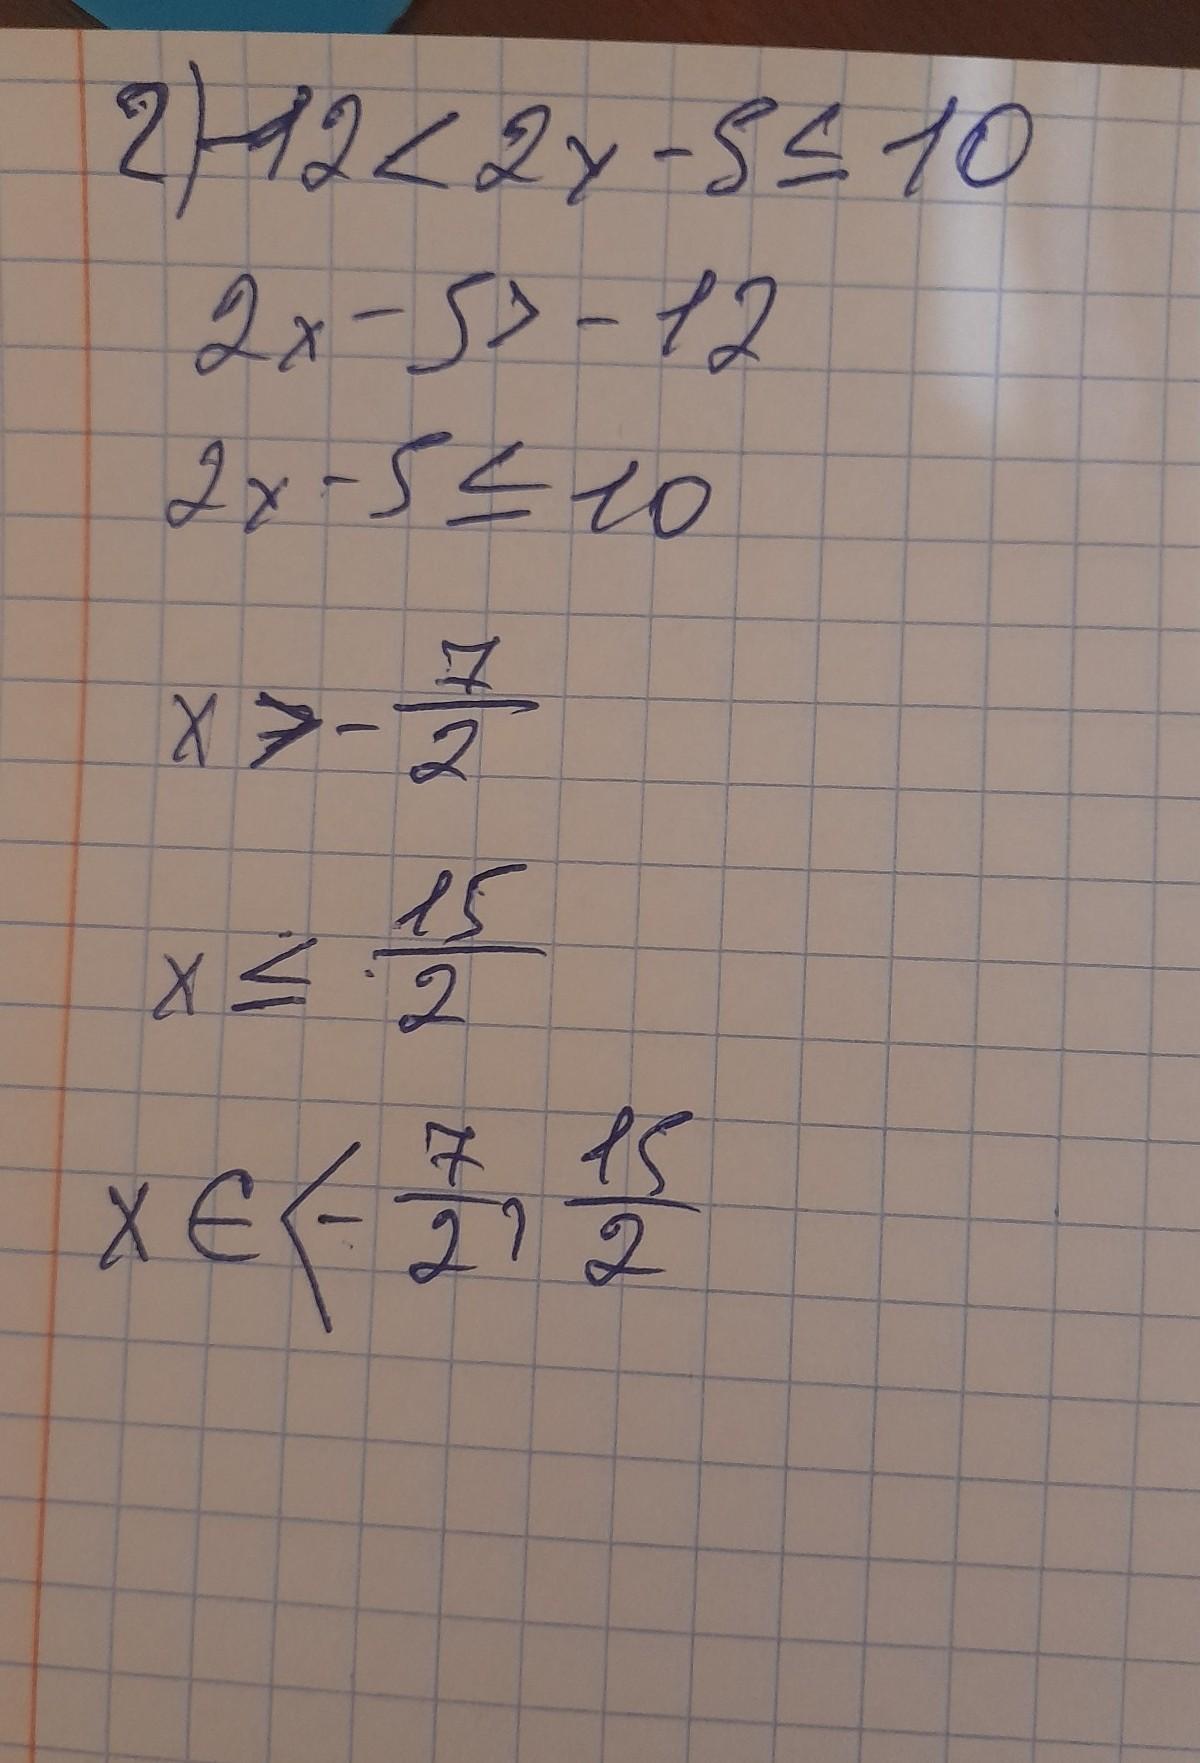 2) -12 < 2x - 5 ≤ 10
2x - 5 > -12
2x - 5 ≤ 10
x > - 7/2
x ≤ 15/2
x ∈ ⟨- 7/2, 15/2